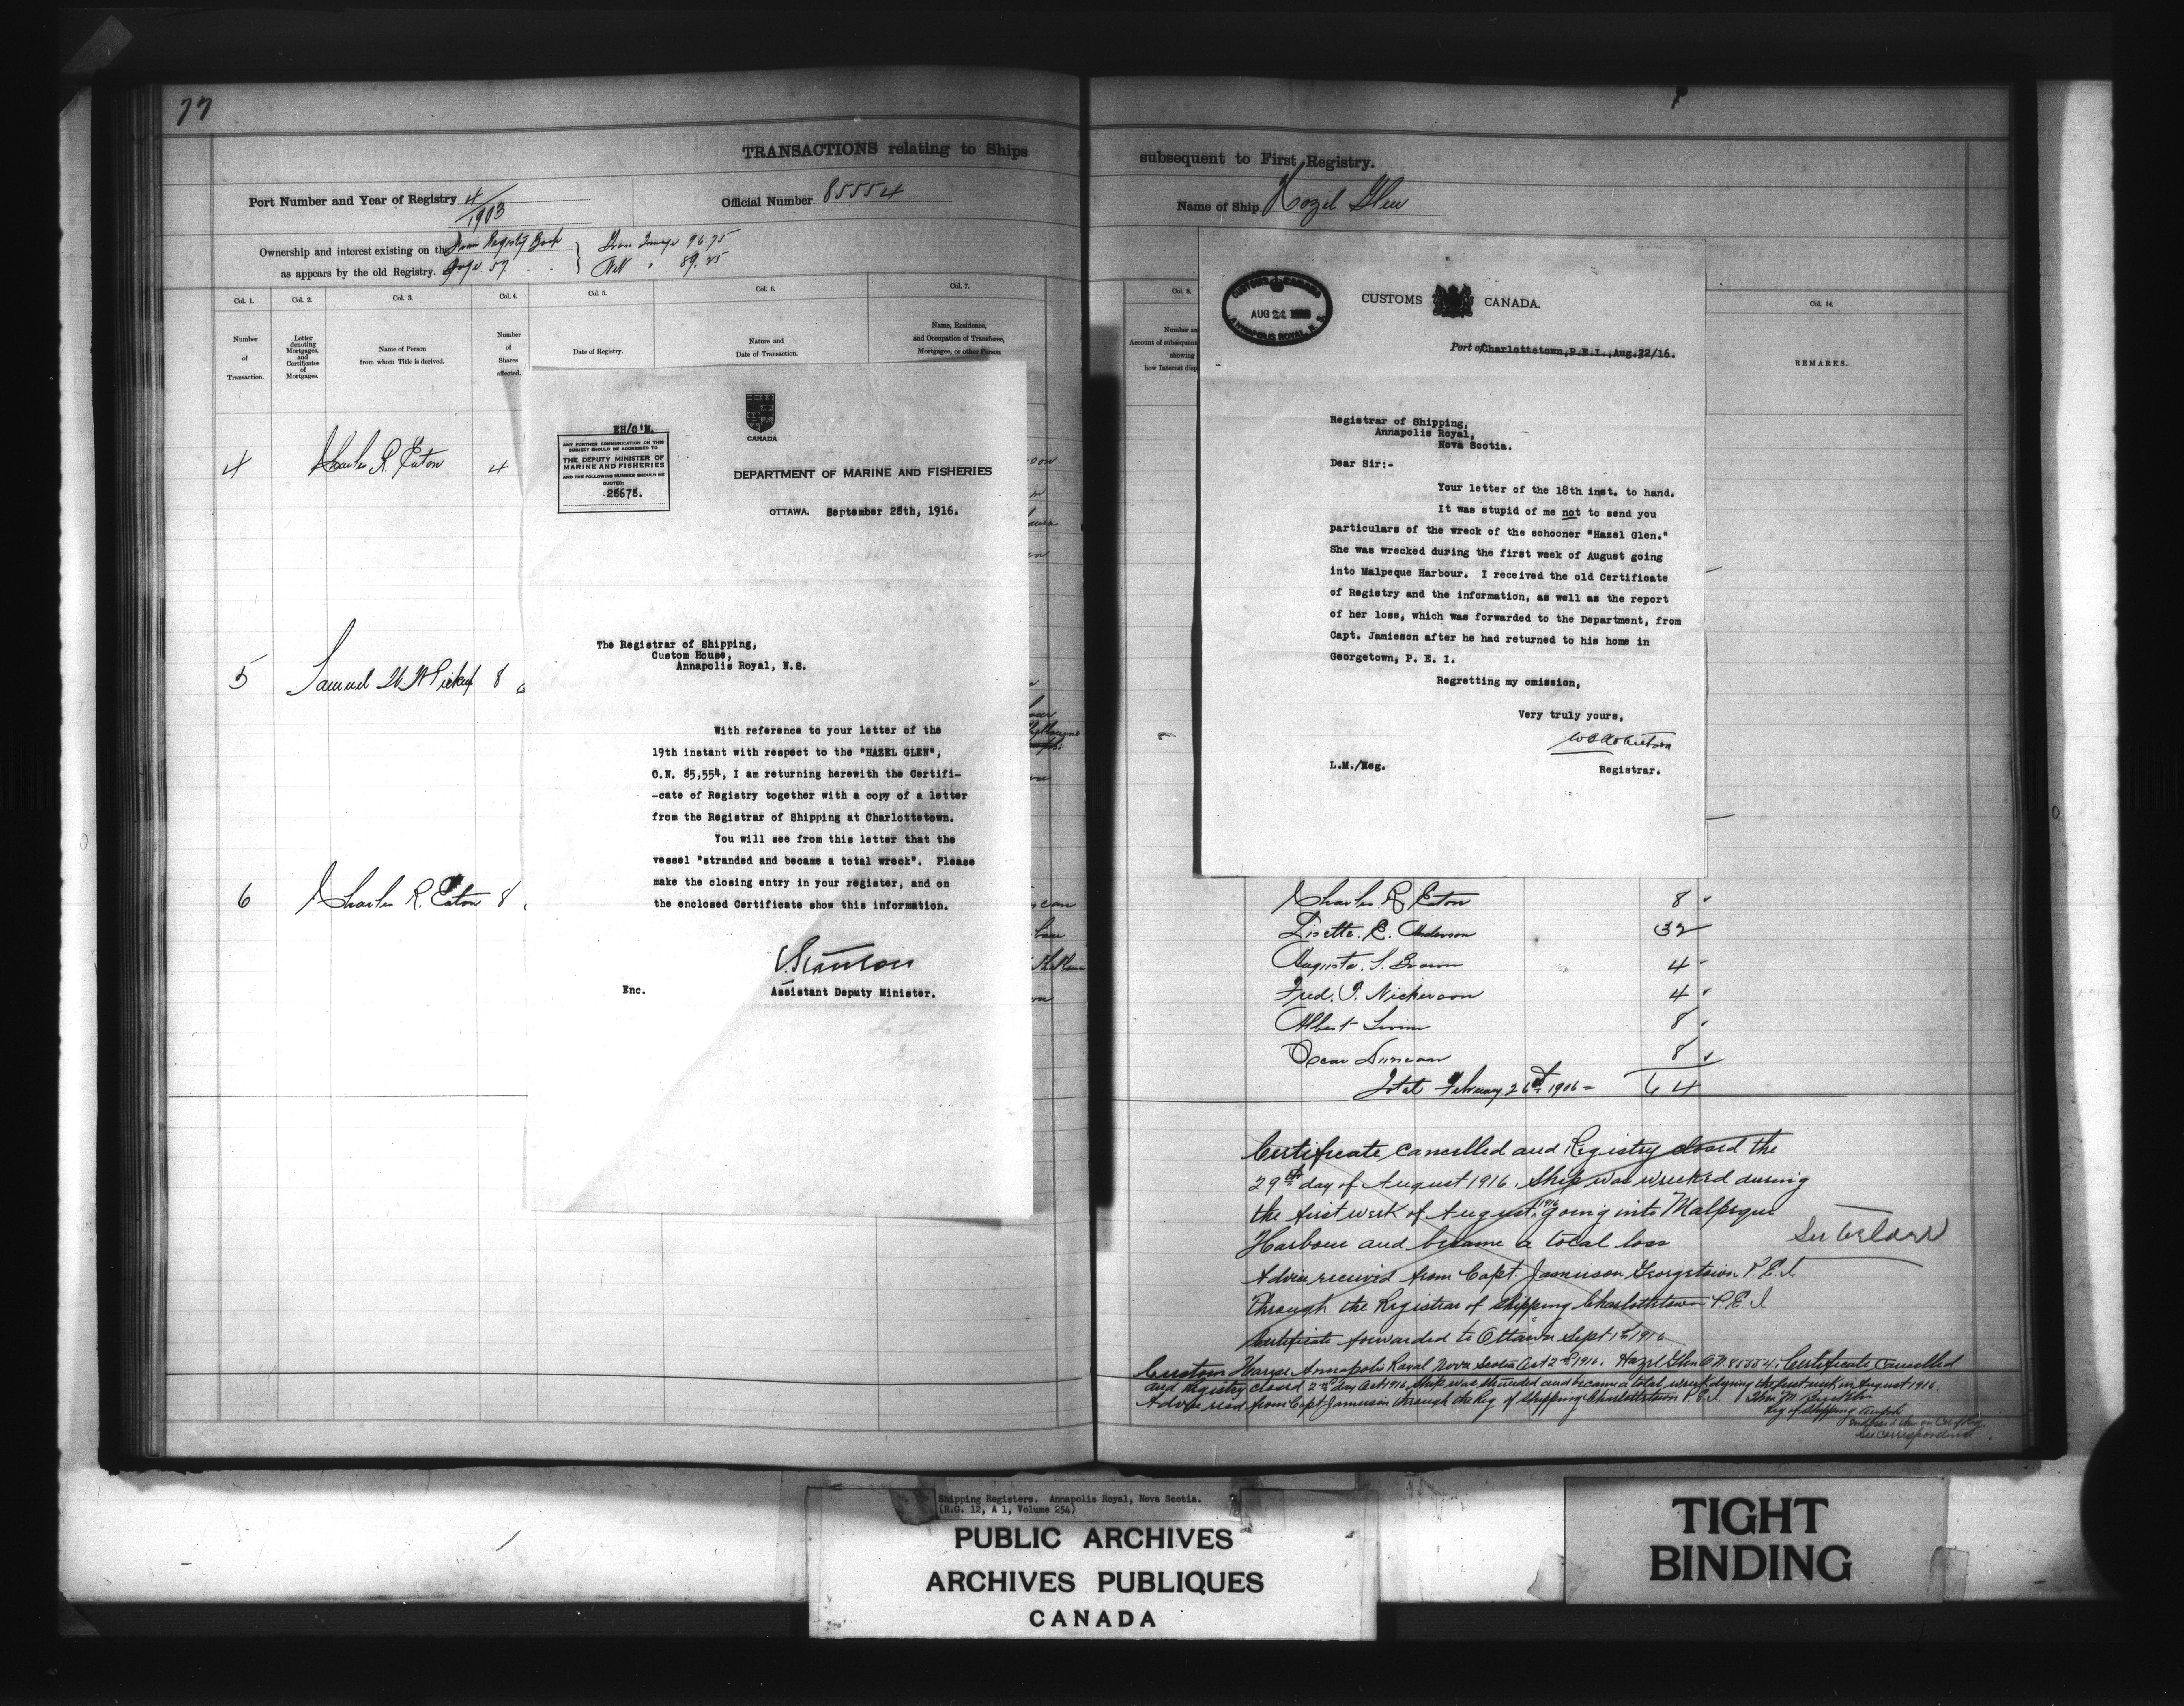 77
TRANSACTIONS relating to Ships
subsequent to First Registry.
Port Number and Year of Registry 4/1903
Official Number 85554
Name of Ship Hazel Glen
Ownership and interest existing on the
as appears by the old Registry.
From Registry Book
Page 57
Gross Tonnage 96.75
Net " 89.25
Col. 1.
Col. 2.
Col. 3.
Col. 4.
Col. 5.
Col. 6.
Col. 7.
Number
of
Transaction.
Letter
denoting
Mortgages,
and
Certificates
of
Mortgages.
Name of Person
from whom Title is derived.
Number
of
Shares
affected.
Date of Registry.
Nature and
Date of Transaction.
Name, Residence,
and Occupation of Transferee,
Mortgagee, or other Person
4 Charles R. Eaton 4
5 Samuel W. W. Pickup 8
6 Charles R. Eaton 8
EH/O'M.
ANY FURTHER COMMUNICATION ON THIS
SUBJECT SHOULD BE ADDRESSED TO
THE DEPUTY MINISTER OF
MARINE AND FISHERIES
AND THE FOLLOWING NUMBER SHOULD BE
QUOTED:
28678.
CANADA
DEPARTMENT OF MARINE AND FISHERIES
OTTAWA, September 28th, 1916.
The Registrar of Shipping,
Custom House,
Annapolis Royal, N.S.
With reference to your letter of the
19th instant with respect to the "HAZEL GLEN",
O.N. 85,554, I am returning herewith the Certifi-
-cate of Registry together with a copy of a letter
from the Registrar of Shipping at Charlottetown.
You will see from this letter that the
vessel "stranded and became a total wreck". Please
make the closing entry in your register, and on
the enclosed Certificate show this information.
Enc.
Assistant Deputy Minister.
Col. 8.
Number and
Account of subsequent
showing
how Interest disp
Col. 14.
REMARKS.
CUSTOMS CANADA
AUG 24
ANNAPOLIS ROYAL, N.S.
CUSTOMS CANADA.
Port of Charlottetown, P.E.I., Aug.22/16.
Registrar of Shipping,
Annapolis Royal,
Nova Scotia.
Dear Sir:-
Your letter of the 18th inst. to hand.
It was stupid of me not to send you
particulars of the wreck of the schooner "Hazel Glen."
She was wrecked during the first week of August going
into Malpeque Harbour. I received the old Certificate
of Registry and the information, as well as the report
of her loss, which was forwarded to the Department, from
Capt. Jamieson after he had returned to his home in
Georgetown, P. E. I.
Regretting my omission,
Very truly yours,
Registrar.
L.M./Reg.
Charles R Eaton 8
Lisette. E. Anderson 32
Augusta. S. Brown 4
Fred. P. Nickerson 4
Albert Irvin 8
Oscar Duncan 8
Total February 26th 1906 = 64
Certificate cancelled and Registry closed the
29th day of August 1916. Ship was wrecked during
the first week of August, 1916 going into Malpeque
Harbour and became a total loss
Advice received from Capt. Jamieson Georgetown P.E.I.
through the Registrar of Shipping Charlottetown P.E.I
Certificate forwarded to Ottawa Sept 1st 1916
See below
Custom House Annapolis Royal Nova Scotia Oct 2nd 1916. Hazel Glen O.N. 85554. Certificate Cancelled
and Registry closed 2nd day Oct 1916 Ship was stranded and became a total wreck during the first week in August 1916.
Advice recd from Capt Jamieson through the Reg of Shipping Charlottetown P.E.I.
Reg of Shipping
See correspondence
Shipping Registers. Annapolis Royal, Nova Scotia.
(R.G. 12, A 1, Volume 254)
PUBLIC ARCHIVES
ARCHIVES PUBLIQUES
CANADA
TIGHT
BINDING